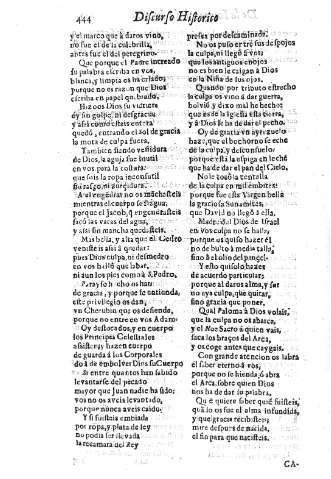 444 Discurso Historico
y el marco que à daros vino,
no fue el de la cul. brilla,
antes fue el del peregrino.
Que porque el Padre increado
su palabra escriba en vos,
blanca, y limpia os ha criado,
porque no es razon que Dios
escriba en papel
Hizoos Dios su vidriera
sin golpe, ni desgracia,
y asi como estais entera
quedò, entrando el sol de gracia
la mota de culpa fuera,
Tambien siendo vestidura
de Dios, la aguja fue inutil
en vos para la costura
que sois la ropa inconsutil
sin rasgo, ni
Al engendrar no os
mientras el cuerpo se fragua,
porque el Jacob,
sacò las varas del agua,
y asi sin mancha quedasteis.
Mas bella, y alta que el
venisteis a asi à quedar:
pues Dios culpa, ni desmedro
en vos hallò que labar,
ni aun los pies como à S. Pedro,
Parayso hecho os han
de gracia, y porque se entienda,
este privilegio os dan,
un Cherubin que os defiende,
porque no entre en vos Adam.
Oy destocados, y en cuerpo
los Principes Celestiales
asisten y hazen cuerpo
de guarda à los Corporales
dò à de embolver Dios su Cuerpo
Si entre quantos han sabido
levantarse del pecado
mayor que Juan nadie ha sido:
vos no os aveis levantado,
porque nunca aveis caido:
Y si fuisteis embiada
por ropa, y plata de ley
no podia ser llevada
la recamara del Rey
presa por descaminada.
No os puso entre sus despojos
la culpa, ni llegò à veros
que los antiguos enojos
no es bien le caigan à Dios
en la Niña de sus ojos.
Quando por tributo estrecho
la culpa os vino à dar guerra,
bolviò y dixo mal he hecho:
que es de la Iglesia esta tierra,
y à Dios se le ha de dar el pecho.
Oy de gracia
haz, que el bochorno se eche
de la culpa, y desconsuelo:
porque està la espiga en leche
que ha de dar el pan del Cielo.
No le tocò la centella
de la culpa en mil embites:
porque fue esta Virgen bella
la graciosa Sunamites,
que David no llegò à ella.
Madre del Dios de Israel
en Vos culpa no se halla,
porque os quiso hazer èl
no de bulto à media talla,
sino de bolio del pincel.
Y esto quiso lo hazer
de acuerdo particular:
porque al daros alma, y ser
no aya culpa, que quitar,
sino gracia que poner.
Qual Paloma à Dios volais,
que la culpa no os abarca,
y el Noe Sacro à quien vais,
saca los braços del Arca,
y os coge antes que caygais.
Con grande atencion os labra
el saber eterno à vos,
porque no se hienda, ò abra
el Arca, sobre quien Dios
nos ha de dar su palabra.
Que è quiere saber què fuisteis,
què à os fue el alma infundida,
y que gracia recibisteis;
mire despues de nacida,
el fin para que nacisteis.
CA-